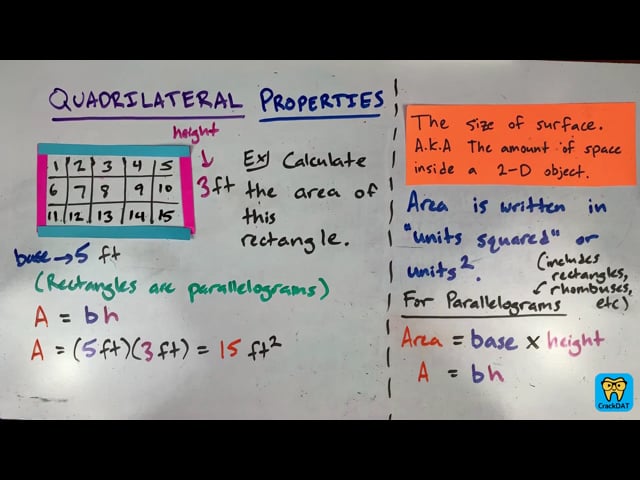 QUADRILATERAL PROPERTIES
height
↓
1 2 3 4 5
6 7 8 9 10
11 12 13 14 15
3ft
base → 5 ft
Ex) Calculate
the area of
this
rectangle.
(Rectangles are parallelograms)
A = bh
A = (5ft)(3ft) = 15 ft²
The size of surface.
A.K.A The amount of space
inside a 2-D object.
Area is written in
"units squared" or
units².
(includes
rectangles,
rhombuses,
etc)
For Parallelograms
Area = base x height
A = bh
CrackDAT